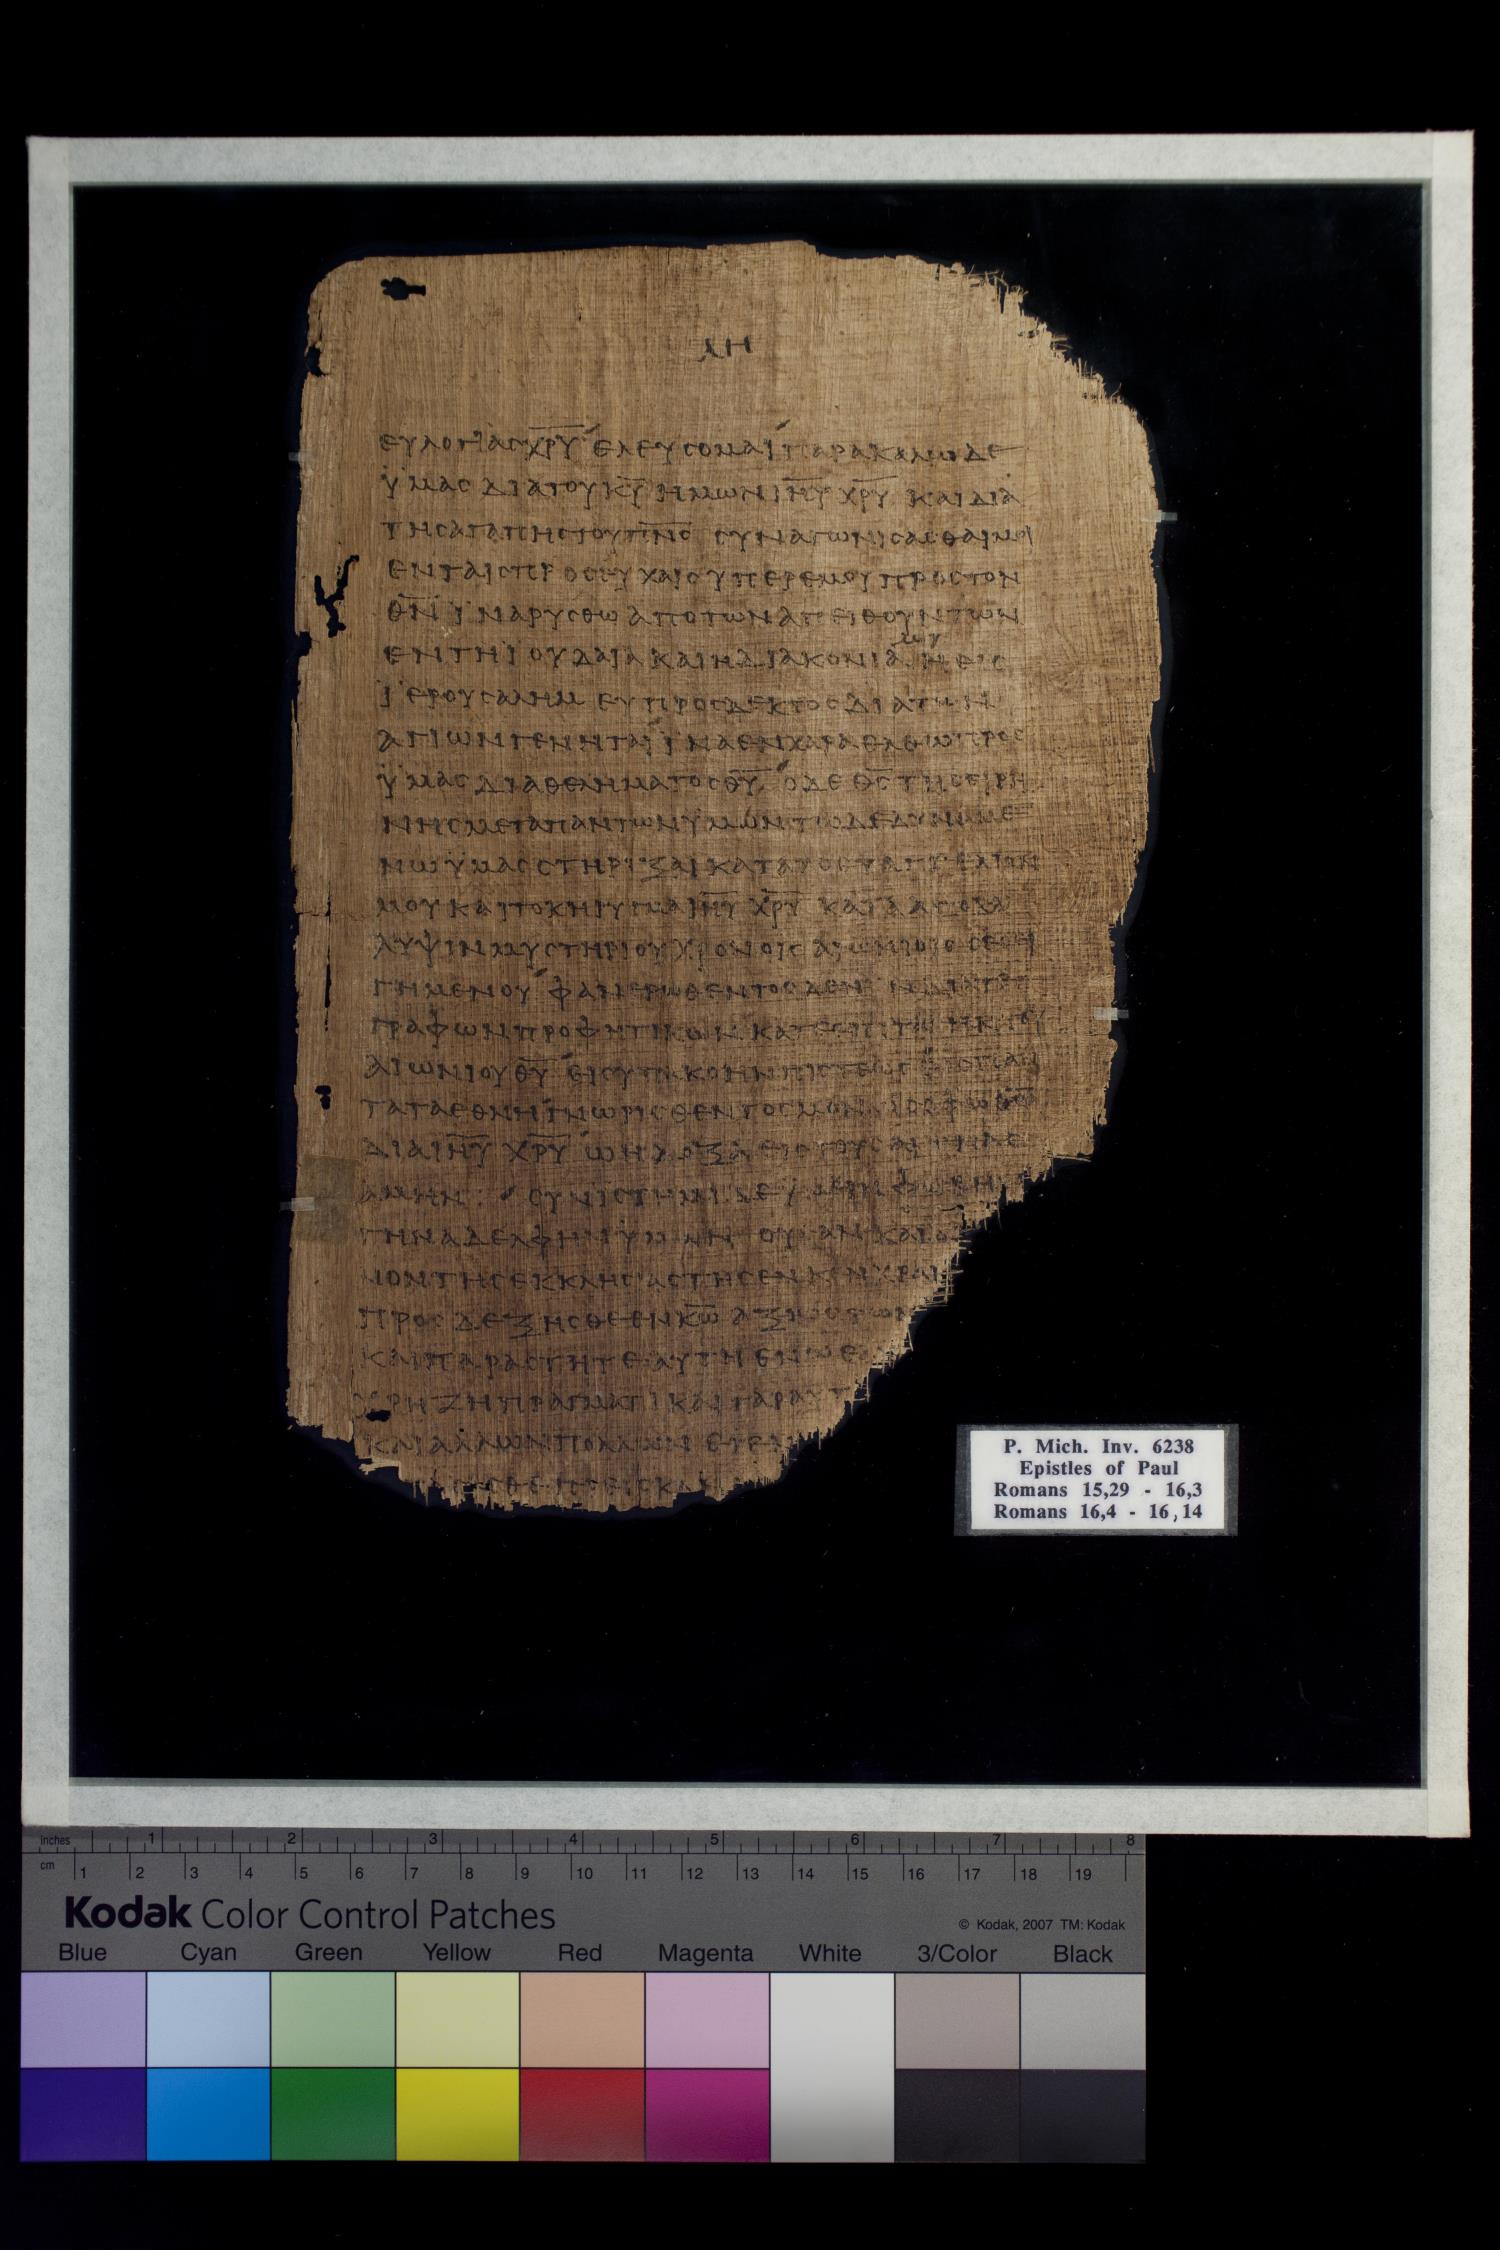 ΛΗ
ΕΥΛΟΓΙΑΣ ΧΡΥ ΕΛΕΥΣΟΜΑΙ ΠΑΡΑΚΑΛΩ ΔΕ
ΫΜΑΣ ΔΙΑ ΤΟΥ ΚΥ ΗΜΩΝ ΙΗΥ ΧΡΥ ΚΑΙ ΔΙΑ
ΤΗΣ ΑΓΑΠΗΣ ΤΟΥ ΠΝΣ ΣΥΝΑΓΩΝΙΣΑΣΘΑΙ ΜΟΙ
ΕΝ ΤΑΙΣ ΠΡΟΣΕΥΧΑΙΣ ΥΠΕΡ ΕΜΟΥ ΠΡΟΣ ΤΟΝ
ΘΝ ΙΝΑ ΡΥΣΘΩ ΑΠΟ ΤΩΝ ΑΠΕΙΘΟΥΝΤΩΝ
ΕΝ ΤΗ ΙΟΥΔΑΙΑ ΚΑΙ Η ΔΙΑΚΟΝΙΑ ΜΟΥ Η ΕΙΣ
ΪΕΡΟΥΣΑΛΗΜ ΕΥΠΡΟΣΔΕΚΤΟΣ ΔΙΑ ΤΩΝ
ΑΓΙΩΝ ΓΕΝΗΤΑΙ ΙΝΑ ΕΝ ΧΑΡΑ ΕΛΘΩ ΠΡΟΣ
ΫΜΑΣ ΔΙΑ ΘΕΛΗΜΑΤΟΣ ΘΥ Ο ΔΕ ΘΣ ΤΗΣ ΕΙΡΗ
ΝΗΣ ΜΕΤΑ ΠΑΝΤΩΝ ΫΜΩΝ ΤΩ ΔΕ ΔΥΝΑΜΕ
ΝΩ ΫΜΑΣ ΣΤΗΡΙΞΑΙ ΚΑΤΑ ΤΟ ΕΥΑΓΓΕΛΙΟΝ
ΜΟΥ ΚΑΙ ΤΟ ΚΗΡΥΓΜΑ ΙΗΥ ΧΡΥ ΚΑΤΑ ΑΠΟΚΑ
ΛΥΨΙΝ ΜΥΣΤΗΡΙΟΥ ΧΡΟΝΟΙΣ ΑΙΩΝΙΟΙΣ ΣΕΣΙ
ΓΗΜΕΝΟΥ ΦΑΝΕΡΩΘΕΝΤΟΣ ΔΕ ΝΥΝ ΔΙΑ ΤΕ
ΓΡΑΦΩΝ ΠΡΟΦΗΤΙΚΩΝ ΚΑΤ ΕΠΙΤΑΓΗΝ ΤΟΥ
ΑΙΩΝΙΟΥ ΘΥ ΕΙΣ ΥΠΑΚΟΗΝ ΠΙΣΤΕΩΣ ΕΙΣ ΠΑΝ
ΤΑ ΤΑ ΕΘΝΗ ΓΝΩΡΙΣΘΕΝΤΟΣ ΜΟΝΩ ΣΟΦΩ ΘΩ
ΔΙΑ ΙΗΥ ΧΡΥ Ω Η ΔΟΞΑ ΕΙΣ ΤΟΥΣ ΑΙΩΝΑΣ
ΑΜΗΝ ΣΥΝΙΣΤΗΜΙ ΔΕ ΥΜΙΝ ΦΟΙΒΗΝ
ΤΗΝ ΑΔΕΛΦΗΝ ΫΜΩΝ ΟΥΣΑΝ ΚΑΙ
ΝΟΝ ΤΗΣ ΕΚΚΛΗΣΙΑΣ ΤΗΣ ΕΝ ΚΕΝΧΡΑΙ
ΠΡΟΣΔΕΞΗΣΘΕ ΕΝ ΚΩ ΑΞΙΩΣ ΤΩΝ
ΚΑΙ ΠΑΡΑΣΤΗΤΕ ΑΥΤΗ ΕΝ Ω Ε
ΧΡΗΖΗ ΠΡΑΓΜΑΤΙ ΚΑΙ ΓΑΡ ΑΥΤ
ΚΑΙ ΑΛΛΩΝ ΠΟΛΛΩΝ ΕΓΕ
P. Mich. Inv. 6238
Epistles of Paul
Romans 15,29 - 16,3
Romans 16,4 - 16,14
inches 1 2 3 4 5 6 7 8
cm 1 2 3 4 5 6 7 8 9 10 11 12 13 14 15 16 17 18 19
Kodak Color Control Patches
© Kodak, 2007 TM: Kodak
Blue Cyan Green Yellow Red Magenta White 3/Color Black